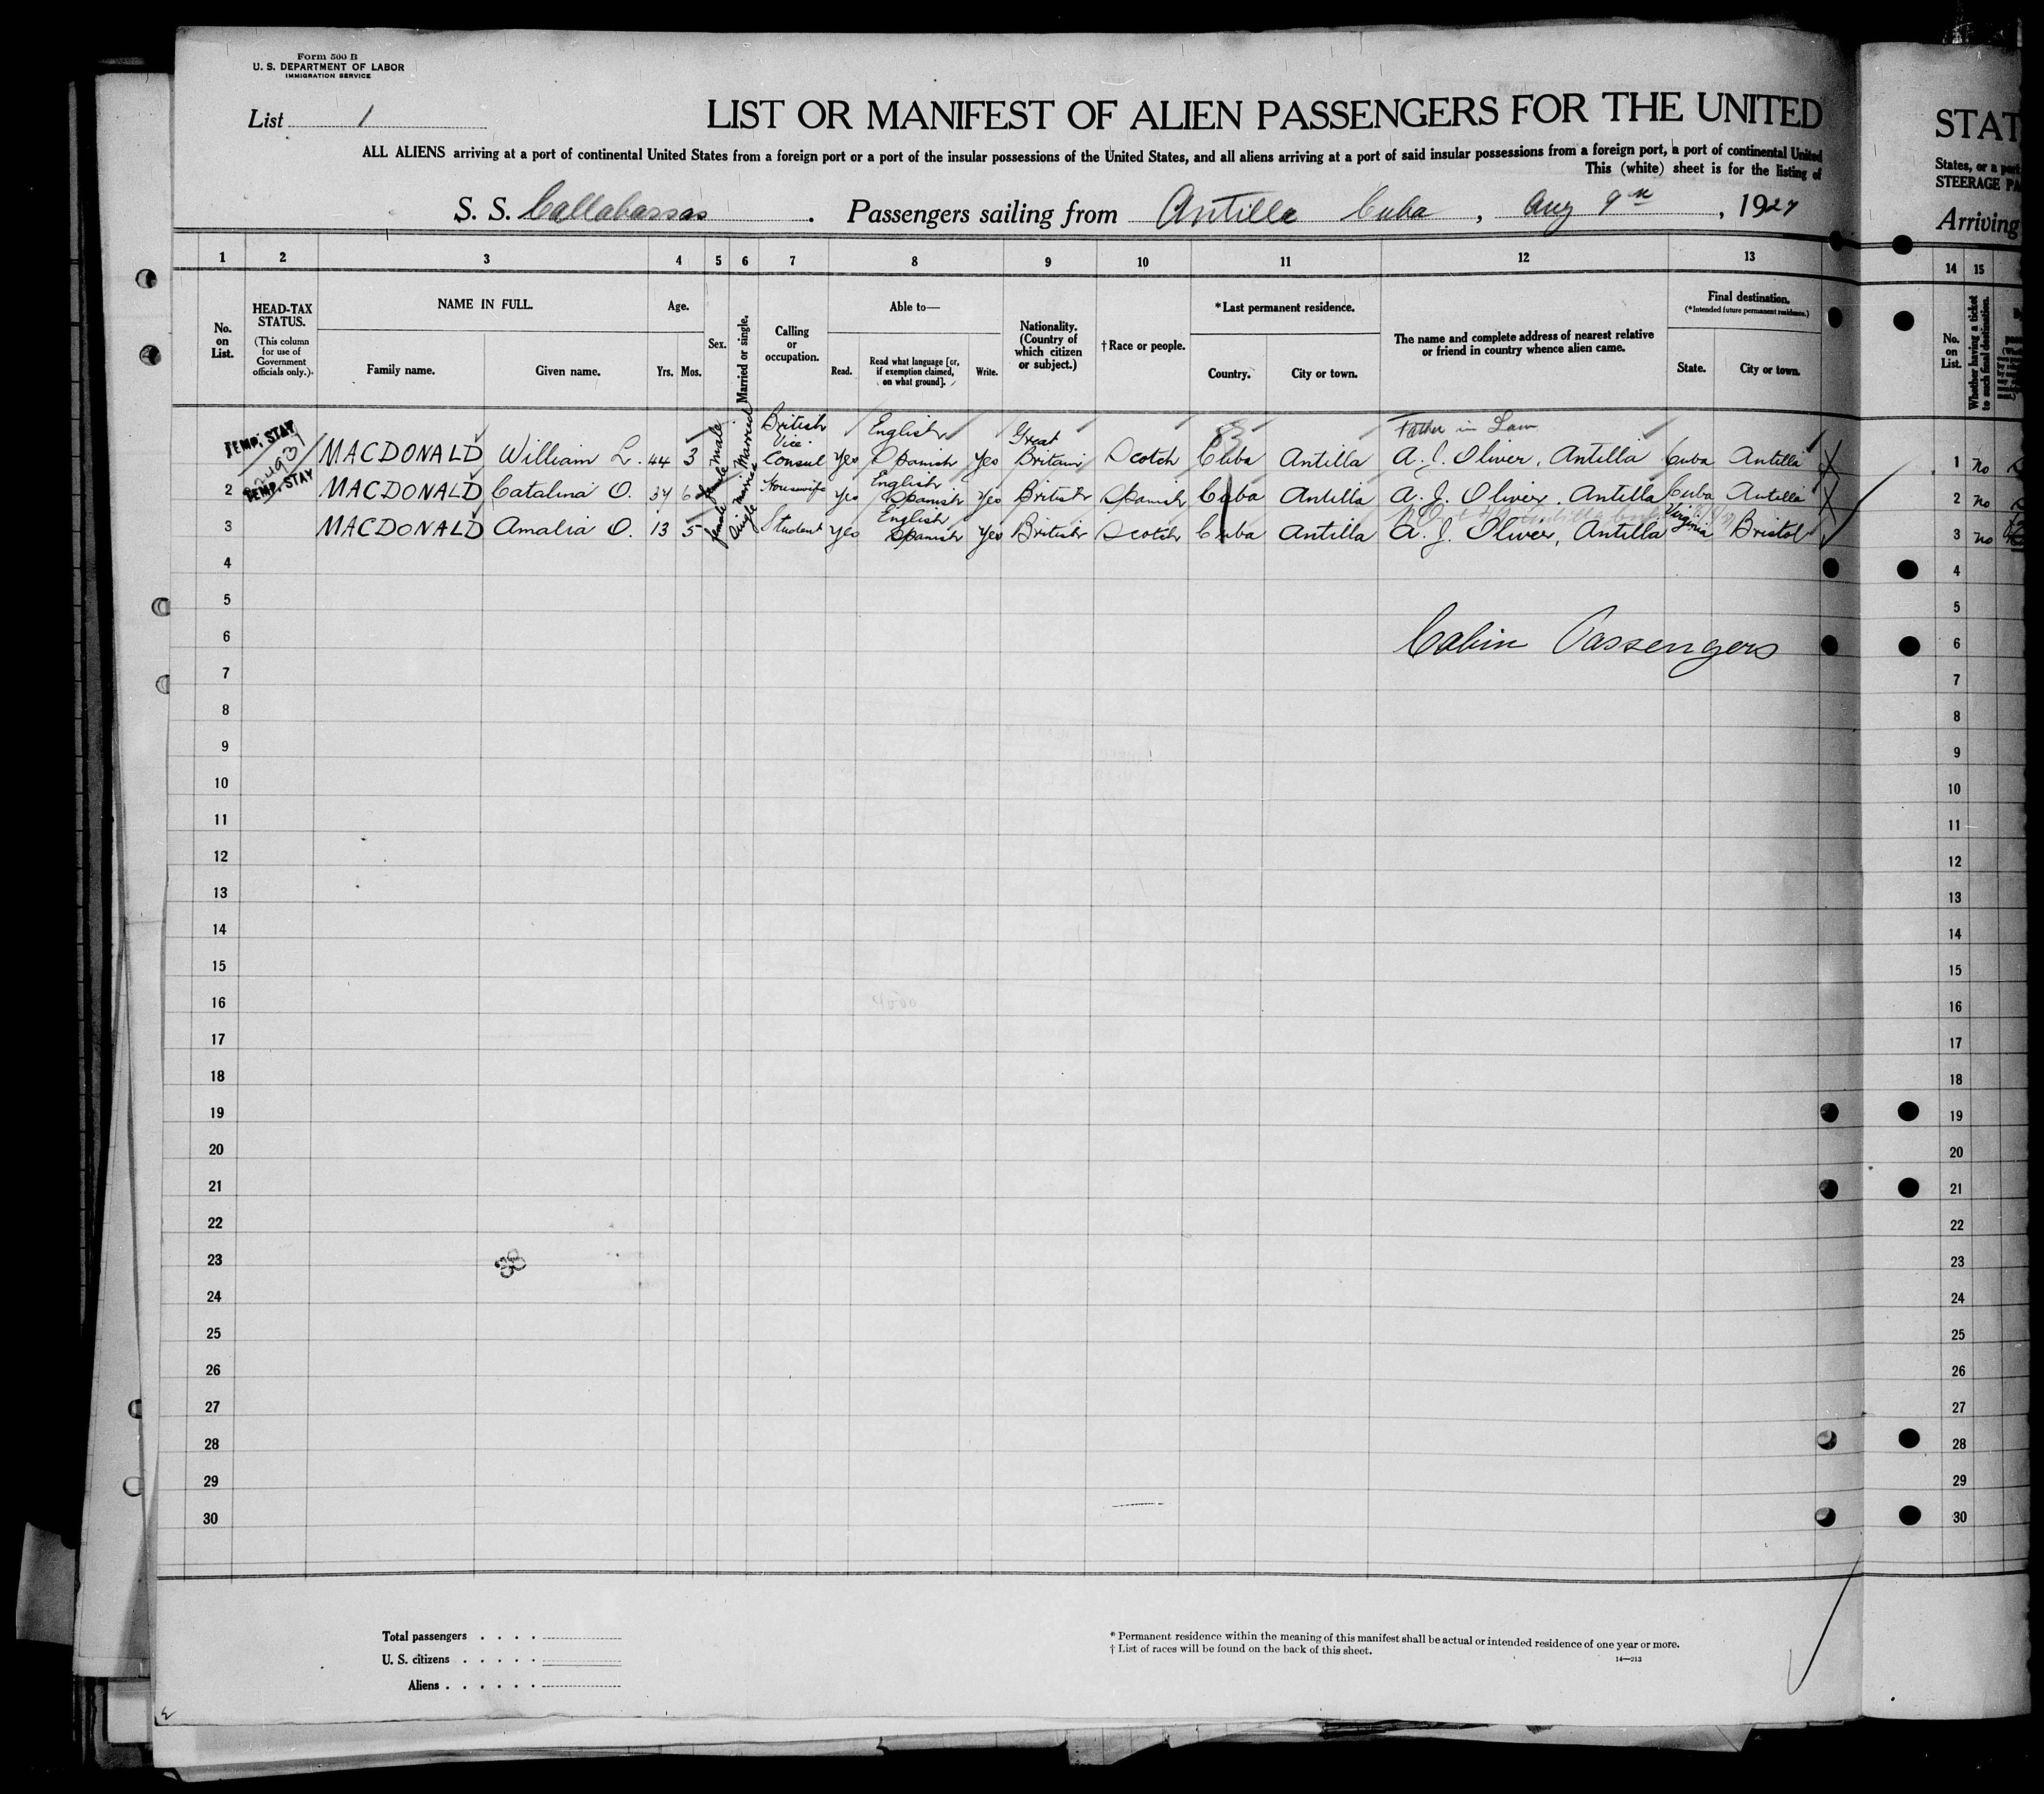 Form 500 B
U. S. DEPARTMENT OF LABOR
IMMIGRATION SERVICE
List 1
LIST OR MANIFEST OF ALIEN PASSENGERS FOR THE UNITED
ALL ALIENS arriving at a port of continental United States from a foreign port or a port of the insular possessions of the United States, and all aliens arriving at a port of said insular possessions from a foreign port, a port of continental United
This (white) sheet is for the listing of
S. S. Callabassas . Passengers sailing from Antilla Cuba , Aug 9th , 1927
1 2 3 4 5 6 7 8 9 10 11 12 13
No. on List.
HEAD-TAX STATUS.
(This column for use of Government officials only.)
NAME IN FULL.
Family name. Given name.
Age.
Yrs. Mos.
Sex.
Married or single.
Calling or occupation.
Able to—
Read. Read what language [or, if exemption claimed, on what ground]. Write.
Nationality. (Country of which citizen or subject.)
† Race or people.
*Last permanent residence.
Country. City or town.
The name and complete address of nearest relative or friend in country whence alien came.
Final destination.
(*Intended future permanent residence.)
State. City or town.
TEMP. STAY MACDONALD William L. 44 3 male Married British Vice Consul Yes English Spanish Yes Great Britain Scotch Cuba Antilla Father in Law A. J. Oliver, Antilla Cuba Antilla
2 TEMP. STAY MACDONALD Catalina O. 37 6 female married Housewife Yes English Spanish Yes British Spanish Cuba Antilla A. J. Oliver, Antilla Cuba Antilla
3 MACDONALD Amalia O. 13 5 female Single Student Yes English Spanish Yes British Scotch Cuba Antilla A. J. Oliver, Antilla Virginia Bristol
4
5
6 Cabin Passengers
7
8
9
10
11
12
13
14
15
16
17
18
19
20
21
22
23
24
25
26
27
28
29
30
38
Total passengers
U. S. citizens
Aliens
* Permanent residence within the meaning of this manifest shall be actual or intended residence of one year or more.
† List of races will be found on the back of this sheet.
14—213
STAT
States, or a port
STEERAGE PA
Arriving
14 15
No. on List.
Whether having a ticket to such final destination.
1 no
2 no
3 no
4
5
6
7
8
9
10
11
12
13
14
15
16
17
18
19
20
21
22
23
24
25
26
27
28
29
30